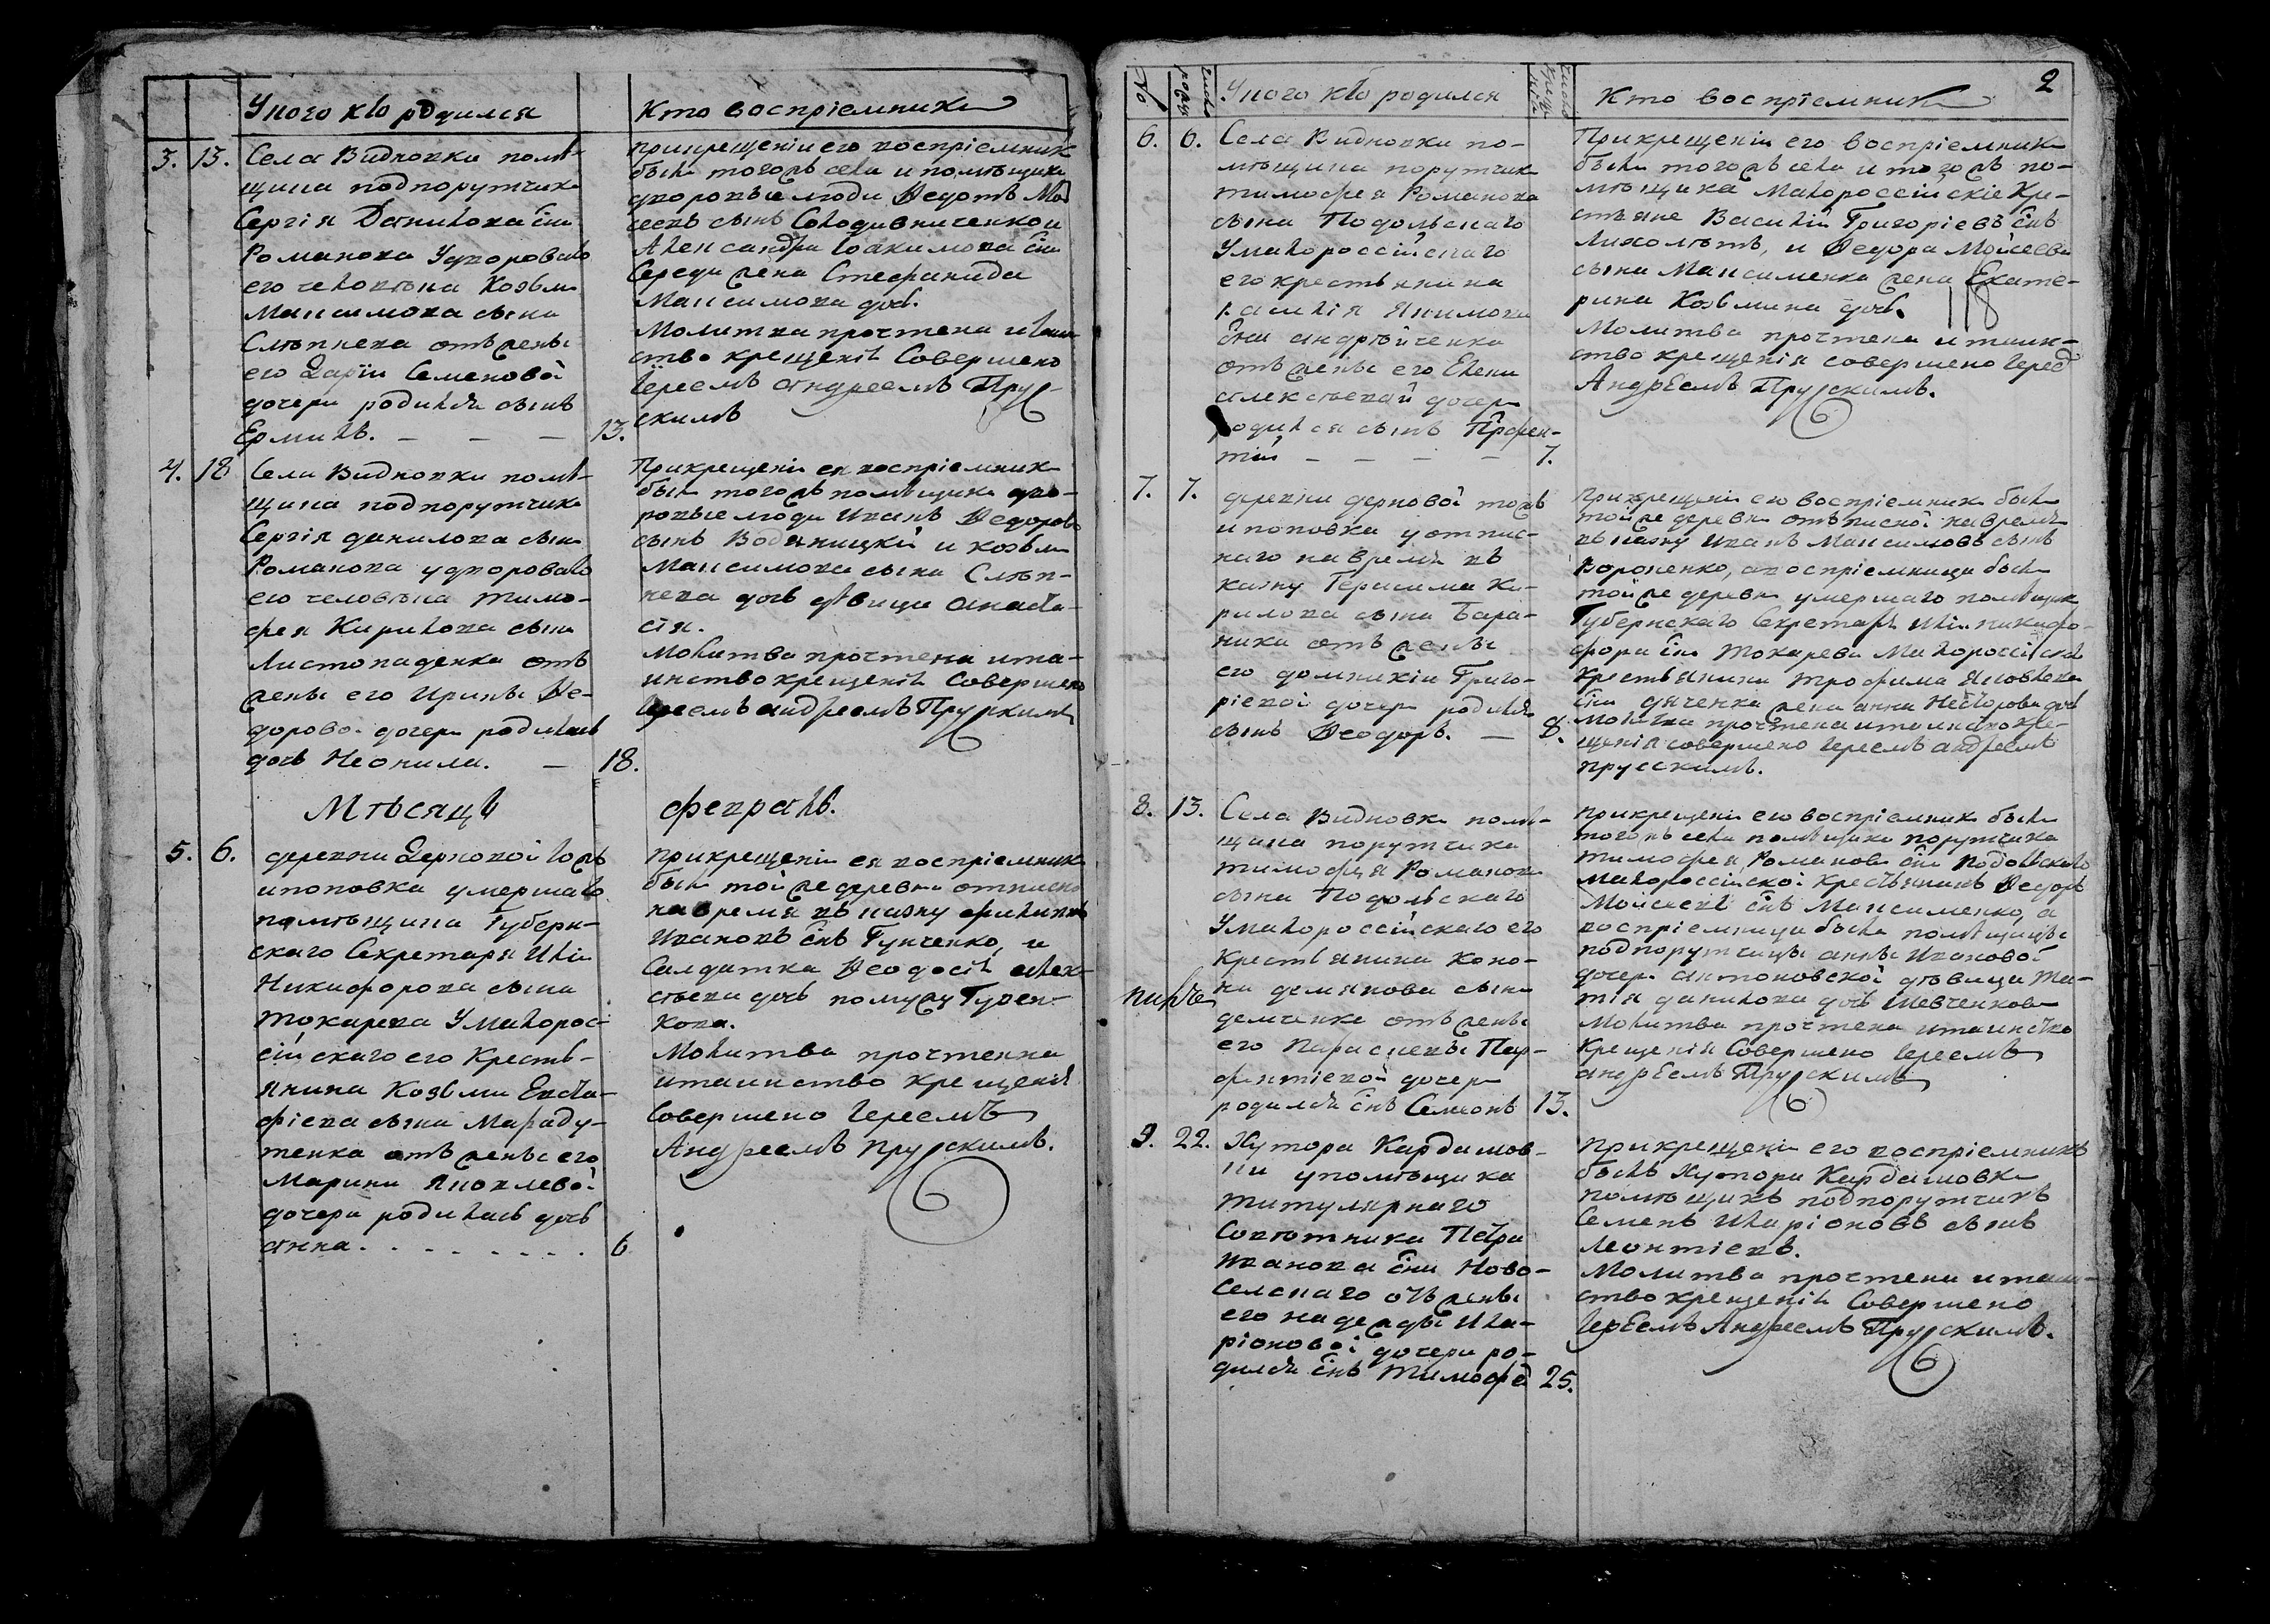 У кого кто родился
Кто восприемники
3. 13. Села Видновки помѣ-
щика подпорутчика
Сергія Данилова сна
Романова У двороваго
его человѣка Козьмы
Максимова сына
Слѣпнева отъ жены
его Даріи Семеновой
дочери родился сынъ
Ермилъ. — — — 13.
При крещеніи его воспріемники
были тогожъ села и помѣщика
дворовые люди Ѳедотъ
сынъ и
Александра сна
Середы жена Стефанида
Максимова дочь.
Молитва прочтена и таин-
ство крещенія Совершено
Іереемъ Андреемъ Прус-
скимъ
4. 18 Села Видновки помѣ-
щика подпорутчика
Сергія данилова сына
Романова у двороваго
его человѣка тимо-
фея Кирилова сына
Листопаденка отъ
жены его Ирины Ѳе-
доровой дочери родилась
дочь Неонила. — 18.
При крещеніи ея воспріемники
были тогожъ помѣщика дво-
ровые люди Иванъ Ѳедоровъ
сынъ Водяницкій и козьмы
Максимова сына Слѣп-
нева дочь дѣвица Анаста-
сія.
Молитва прочтена и та-
инство крещенія Совершено
Іереемъ андреемъ Прускимъ
Мѣсяцъ февраль.
5. 6. деревни Дерновой тожъ
и поповка умершаго
помѣщика Губерн-
скаго Секретаря Ильи
Никифорова сына
Токарева У Малорос-
сійскаго его Кресть-
янина Козьмы Евста-
фіева сына
отъ жены его
Марины Яковлевой
дочери родилась дочь
анна. . . . . . . . . 6
При крещеніи ея воспріемники
были тойже деревни отписной
на время въ казну филиппъ
Ивановъ снъ Гунченко, и
Салдатка Ѳеодосія алек-
сѣева дочь по мужу
Молитва прочтенна
и таинство крещенія
Совершено Іереемъ
Андреемъ Прусскимъ.
2
№ число рожд У кого кто родился число крещенія Кто воспріемники
6. 6. Села Видновки по-
мѣщика порутчика
тимофея Романова
сына Подольскаго
У малороссійскаго
его крестьянина
василія Якимова
сна андрѣйченка
отъ жены его Елены
алексѣевой дочери
родился сынъ Парфен-
тій — — — — 7.
При крещеніи его воспріемники
были тогожъ села и тогожъ по-
мѣщика Малороссійскіе Кре-
стьяне Василій Григоріевъ снъ
Лихолѣтъ, и Ѳедора Мойсеева
сына Максименка жена Екате-
рина Козьмина дочь.
118
Молитва прочтена и таин-
ство крещенія совершено Іерее
Андреемъ Прусскимъ.
7. 7. деревни дерновой тожъ
и поповка у отпис-
наго на время въ
казну Герасима Ки-
рилова сына Бара-
ника отъ жены
его домникіи Григо-
ріевой дочери родился
сынъ Ѳеодоръ. — 8.
При крещеніи его воспріемники были
тойже деревни отписной на время
въ казну Иванъ Максимовъ сынъ
Вороненко, а воспріемница была
тойже деревни умершаго помѣщика
Губернскаго Секретаря Ильи никифо-
фора сна Токарева Малороссійскаго
Крестьянина трофима Яковлева
сна дяченка жена анна Несторова дочь
Молитва прочтена и таинство кре-
щенія совершено Іереемъ андреемъ
прусскимъ.
8. 13. Села Видновки помѣ-
щика порутчика
тимофея Романова
сына Подольскаго
У малороссійскаго его
Крестьянина Коно-
на демянова сына
демченка отъ жены
его Парасковьи Пар-
фентіевой дочери
родился снъ Семіонъ 13.
При крещеніи его воспріемники были
тогожъ села помѣщика порутчика
тимофея Романова сна Подольскаго
малороссійской крестьянинъ Ѳедоръ
Мойсеевъ снъ Максименко, а
воспріемница была помѣщицы
подпорутчицы анны Ивановой
дочери антоновской дѣвица
данилова дочь Шевченкова
Молитва прочтена и таинство
Крещенія Совершено Іереемъ
андреемъ Прусскимъ
9. 22. Хутора Кардашов-
ки у помѣщика
титулярнаго
Совѣтника Петра
Иванова сна Ново-
селскаго отъ жены
его надежды Ила-
ріоновой дочери ро-
дился снъ Тимофей 25.
При крещеніи его воспріемникъ
былъ Хутора Кардашовки
помѣщикъ подпорутчикъ
Семенъ Иларіоновъ сынъ
Леонтіевъ.
Молитва прочтена и таин-
ство крещенія Совершено
Іереемъ Андреемъ Прусскимъ.